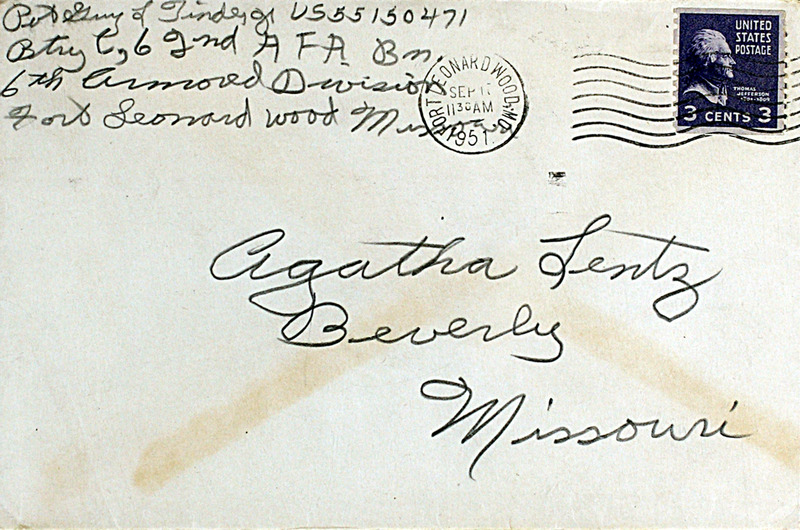 Pvt Guy L Tinder Jr US55150471
Btry C, 62nd A F A Bn
6th Armored Division
Fort Leonard Wood Missouri
FORT LEONARD WOOD, MO.
SEP 1
11 30 AM
1951
UNITED
STATES
POSTAGE
THOMAS
JEFFERSON
3 CENTS 3
Agatha Lentz
Beverly
Missouri